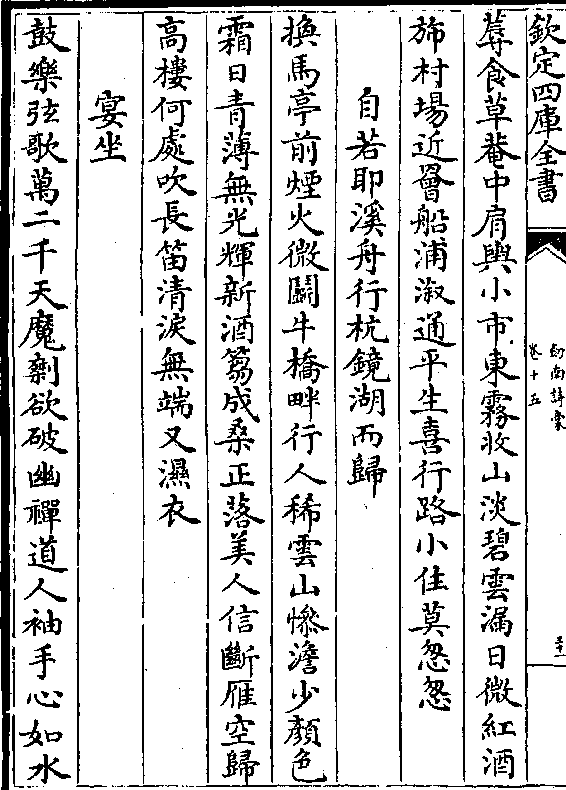 欽定四庫全書
劍南詩稾
卷十五
蓐食草菴中肩輿小市東霧收山淡碧雲漏日微紅酒
斾村場近罾船浦溆通平生喜行路小住莫怱怱
自若耶溪舟行杭鏡湖而歸
換馬亭前煙火微鬬牛橋畔行人稀雲山慘澹少顏色
霜日青薄無光輝新酒篘成桑正落美人信斷雁空歸
高樓何處吹長笛清淚無端又濕衣
宴坐
鼓樂弦歌萬二千天魔劑欲破幽禪道人袖手心如水